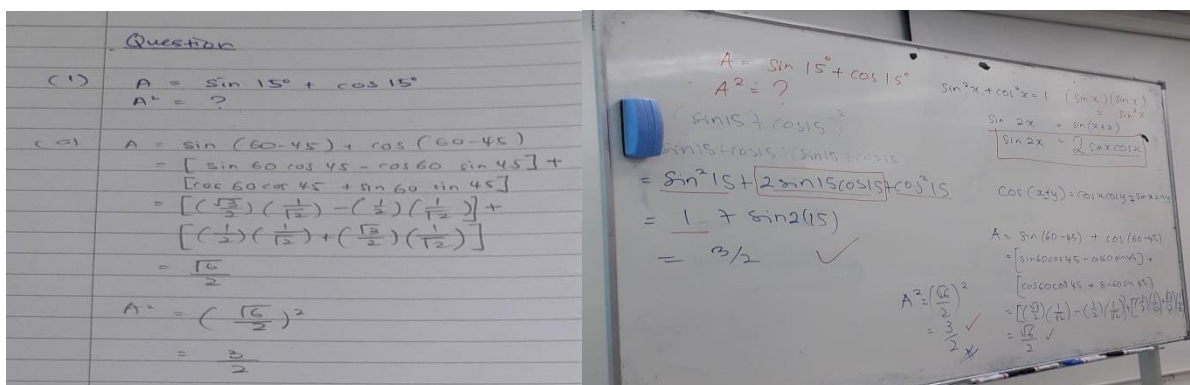 Question
(1) A = sin 15° + cos 15°
A² = ?
A = sin (60-45) + cos (60-45)
= [sin 60 cos 45 - cos 60 sin 45] +
[cos 60 cos 45 + sin 60 sin 45]
= [(√3/2)(1/√2) - (1/2)(1/√2)] +
[(1/2)(1/√2) + (√3/2)(1/√2)]
= √6/2
A² = (√6/2)²
= 3/2
A = sin 15° + cos 15°
A² = ?
(sin15 + cos15)²
sin15+cos15 (sin15 + cos15
= sin²15 + 2sin15cos15 + cos²15
= 1 + sin2(15)
= 3/2 ✓
sin²x + cos²x = 1 (sinx)(sinx)
= sin²x
sin 2x = sin(x+x)
sin 2x = 2 sinxcosx
cos (x±y) = cosxcosy ∓ sinxsiny
A = sin(60-45) + cos(60-45)
= [sin60cos45 - cos60sin45] +
[cos60cos45 + sin60sin45]
= [(√3/2)(1/√2) - (1/2)(1/√2)] + [(1/2)(1/√2) + (√3/2)(1/√2)]
= √6/2 ✓
A² = (√6/2)²
= 3/2 ✓